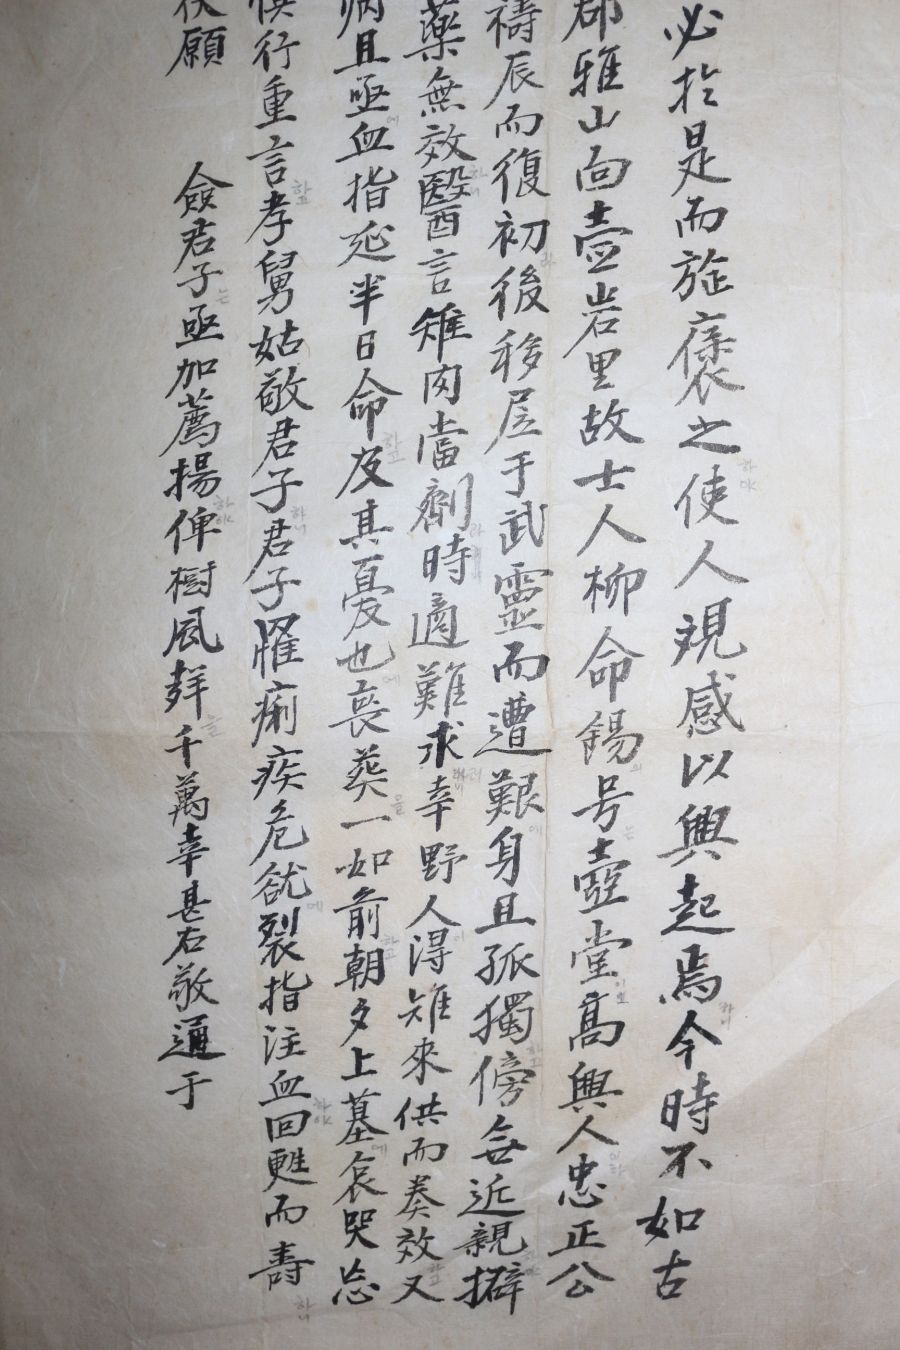 必於是而旌褒之使人覌感以興起焉今時不如古
郡雅山面壼岩里故士人柳命錫号壼堂高興人忠正公
禱辰而復初後移居于武靈而遭艱身且孤獨傍無近親擗
藥無效醫言雉肉當劑時適難求幸野人得雉來供而奏效又
病且亟血指延半日命及其憂也喪葬一如前朝夕上墓哀哭忘
行重言孝舅姑敬君子君子罹痢疾危欲裂指注血回甦而壽
伏願
僉君子亟加薦揚俾樹風聲千萬幸甚右敬通于